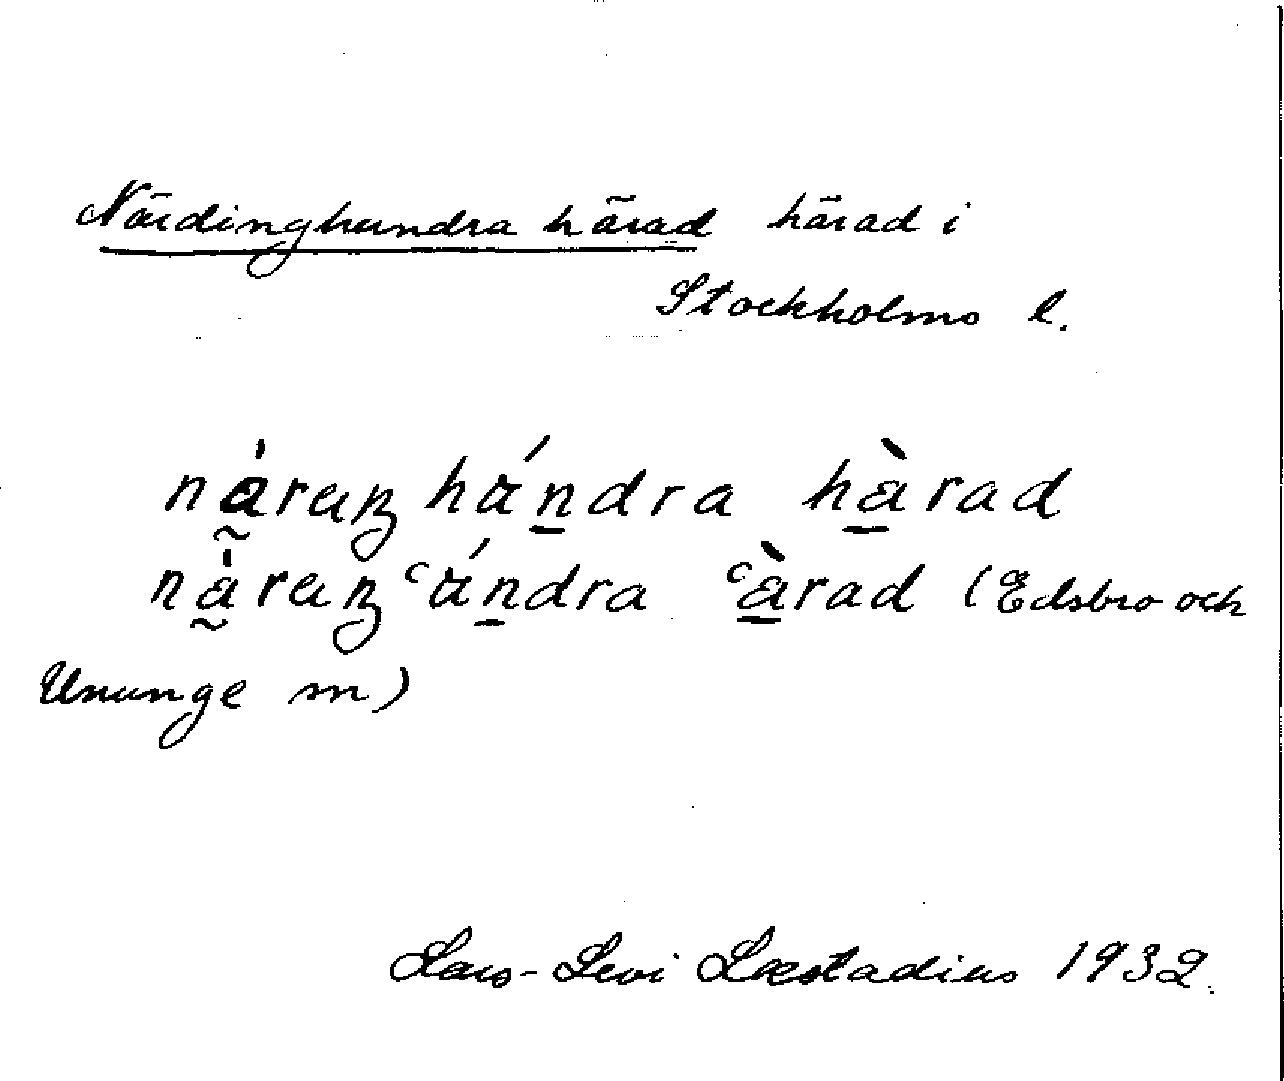 Närdinghundra härad härad i
Stockholms l.
nä̀raŋhándra hä̀rad
nä̀raŋʿándra ʿä̀rad (Edsbro och
Ununge m)
Lars-Levi Læstadius 1932.